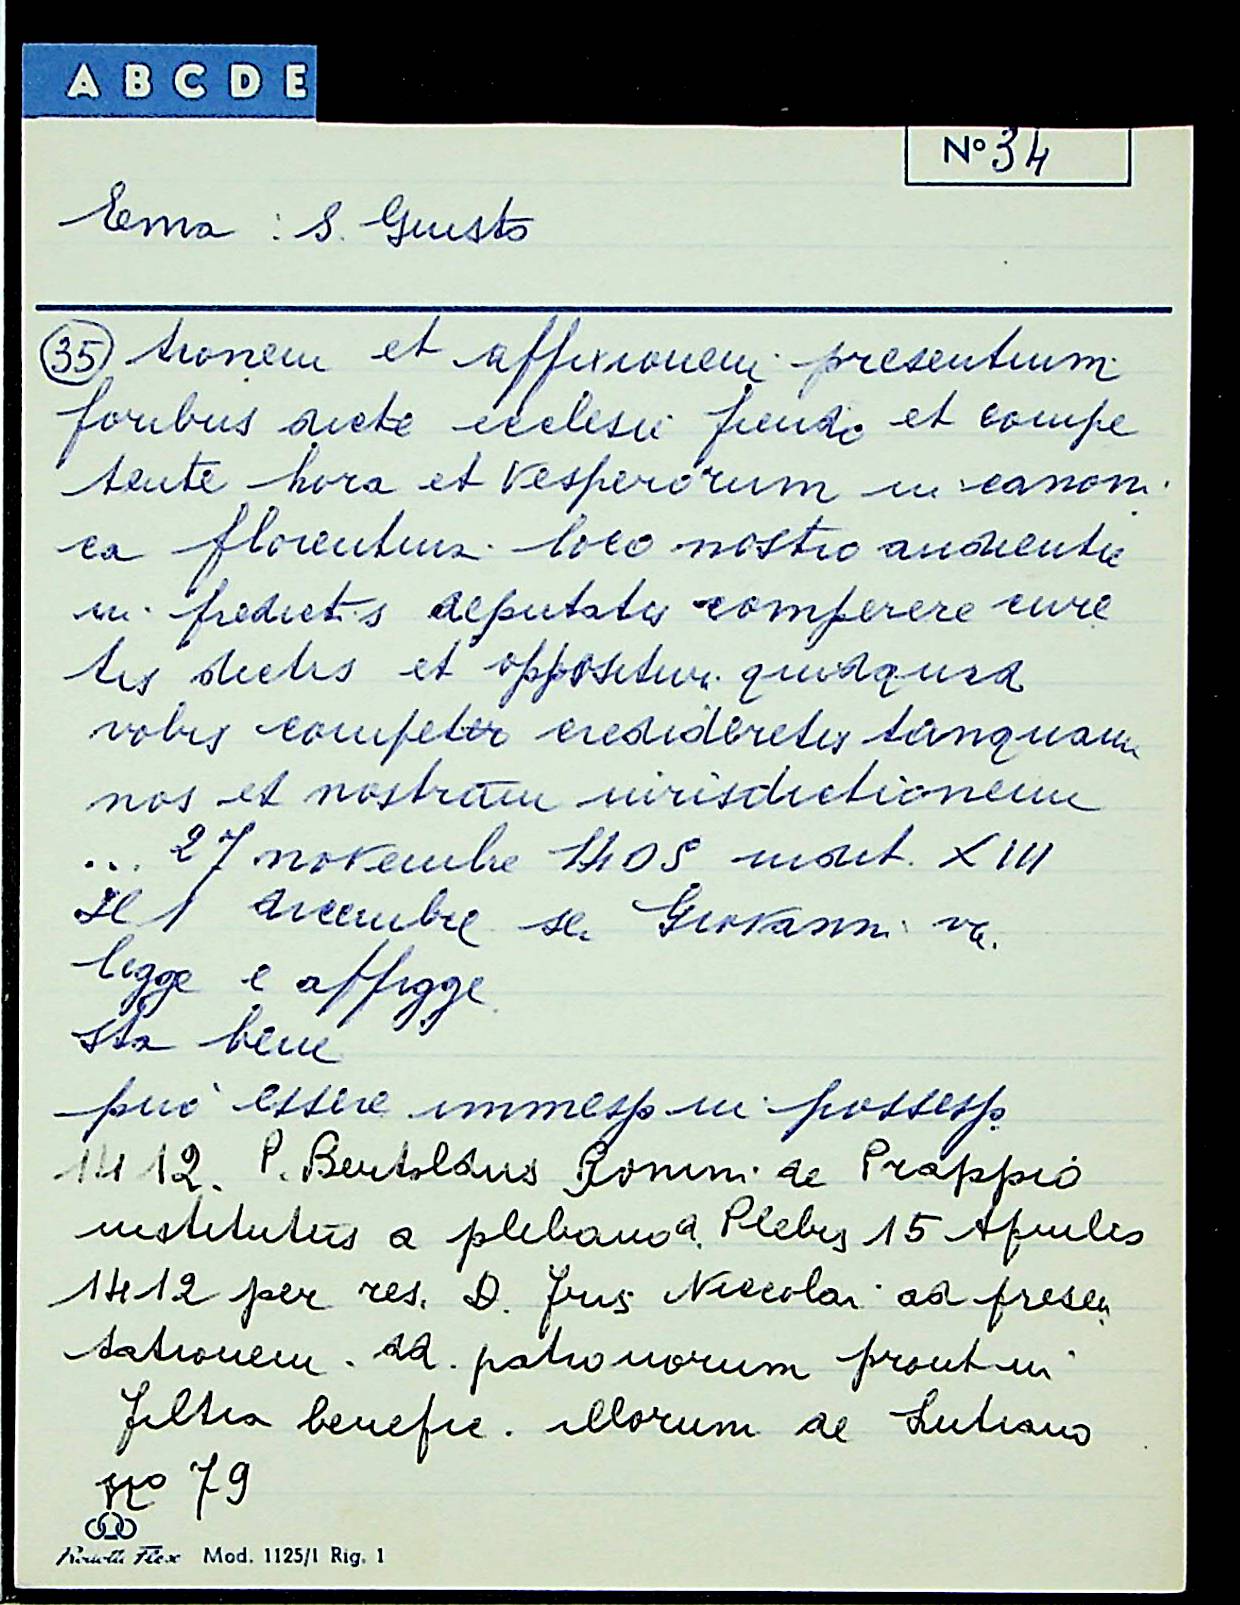 A B C D E
N° 34
Ema : S. Giusto
35 tionem et affixionem presentium
foribus dicte ecclesie fiendo et compe
tente hora et Vesperorum in canoni
ca florentina loco nostro audientie
in predictis deputatis comperere cure
tis dictis et oppositur quidquid
vobis competer credideretis tanquam
nos et nostram iurisdictionem
... 27 novembre 1405 indit. XIII
Il 1 dicembre se. Giovanni va.
legge e affigge
sta bene
può essere immesso in possesso
1412. P. Bertoldus Bonini de Prappio
institutus a plebano d. Plebis 15 Aprilis
1412 per res. D. Jus Niccolai ad presen
tationem. dd. patronorum prout in
filtia benefic. illorum de Lutiano
n° 79
Mod. 1125/1 Rig. 1